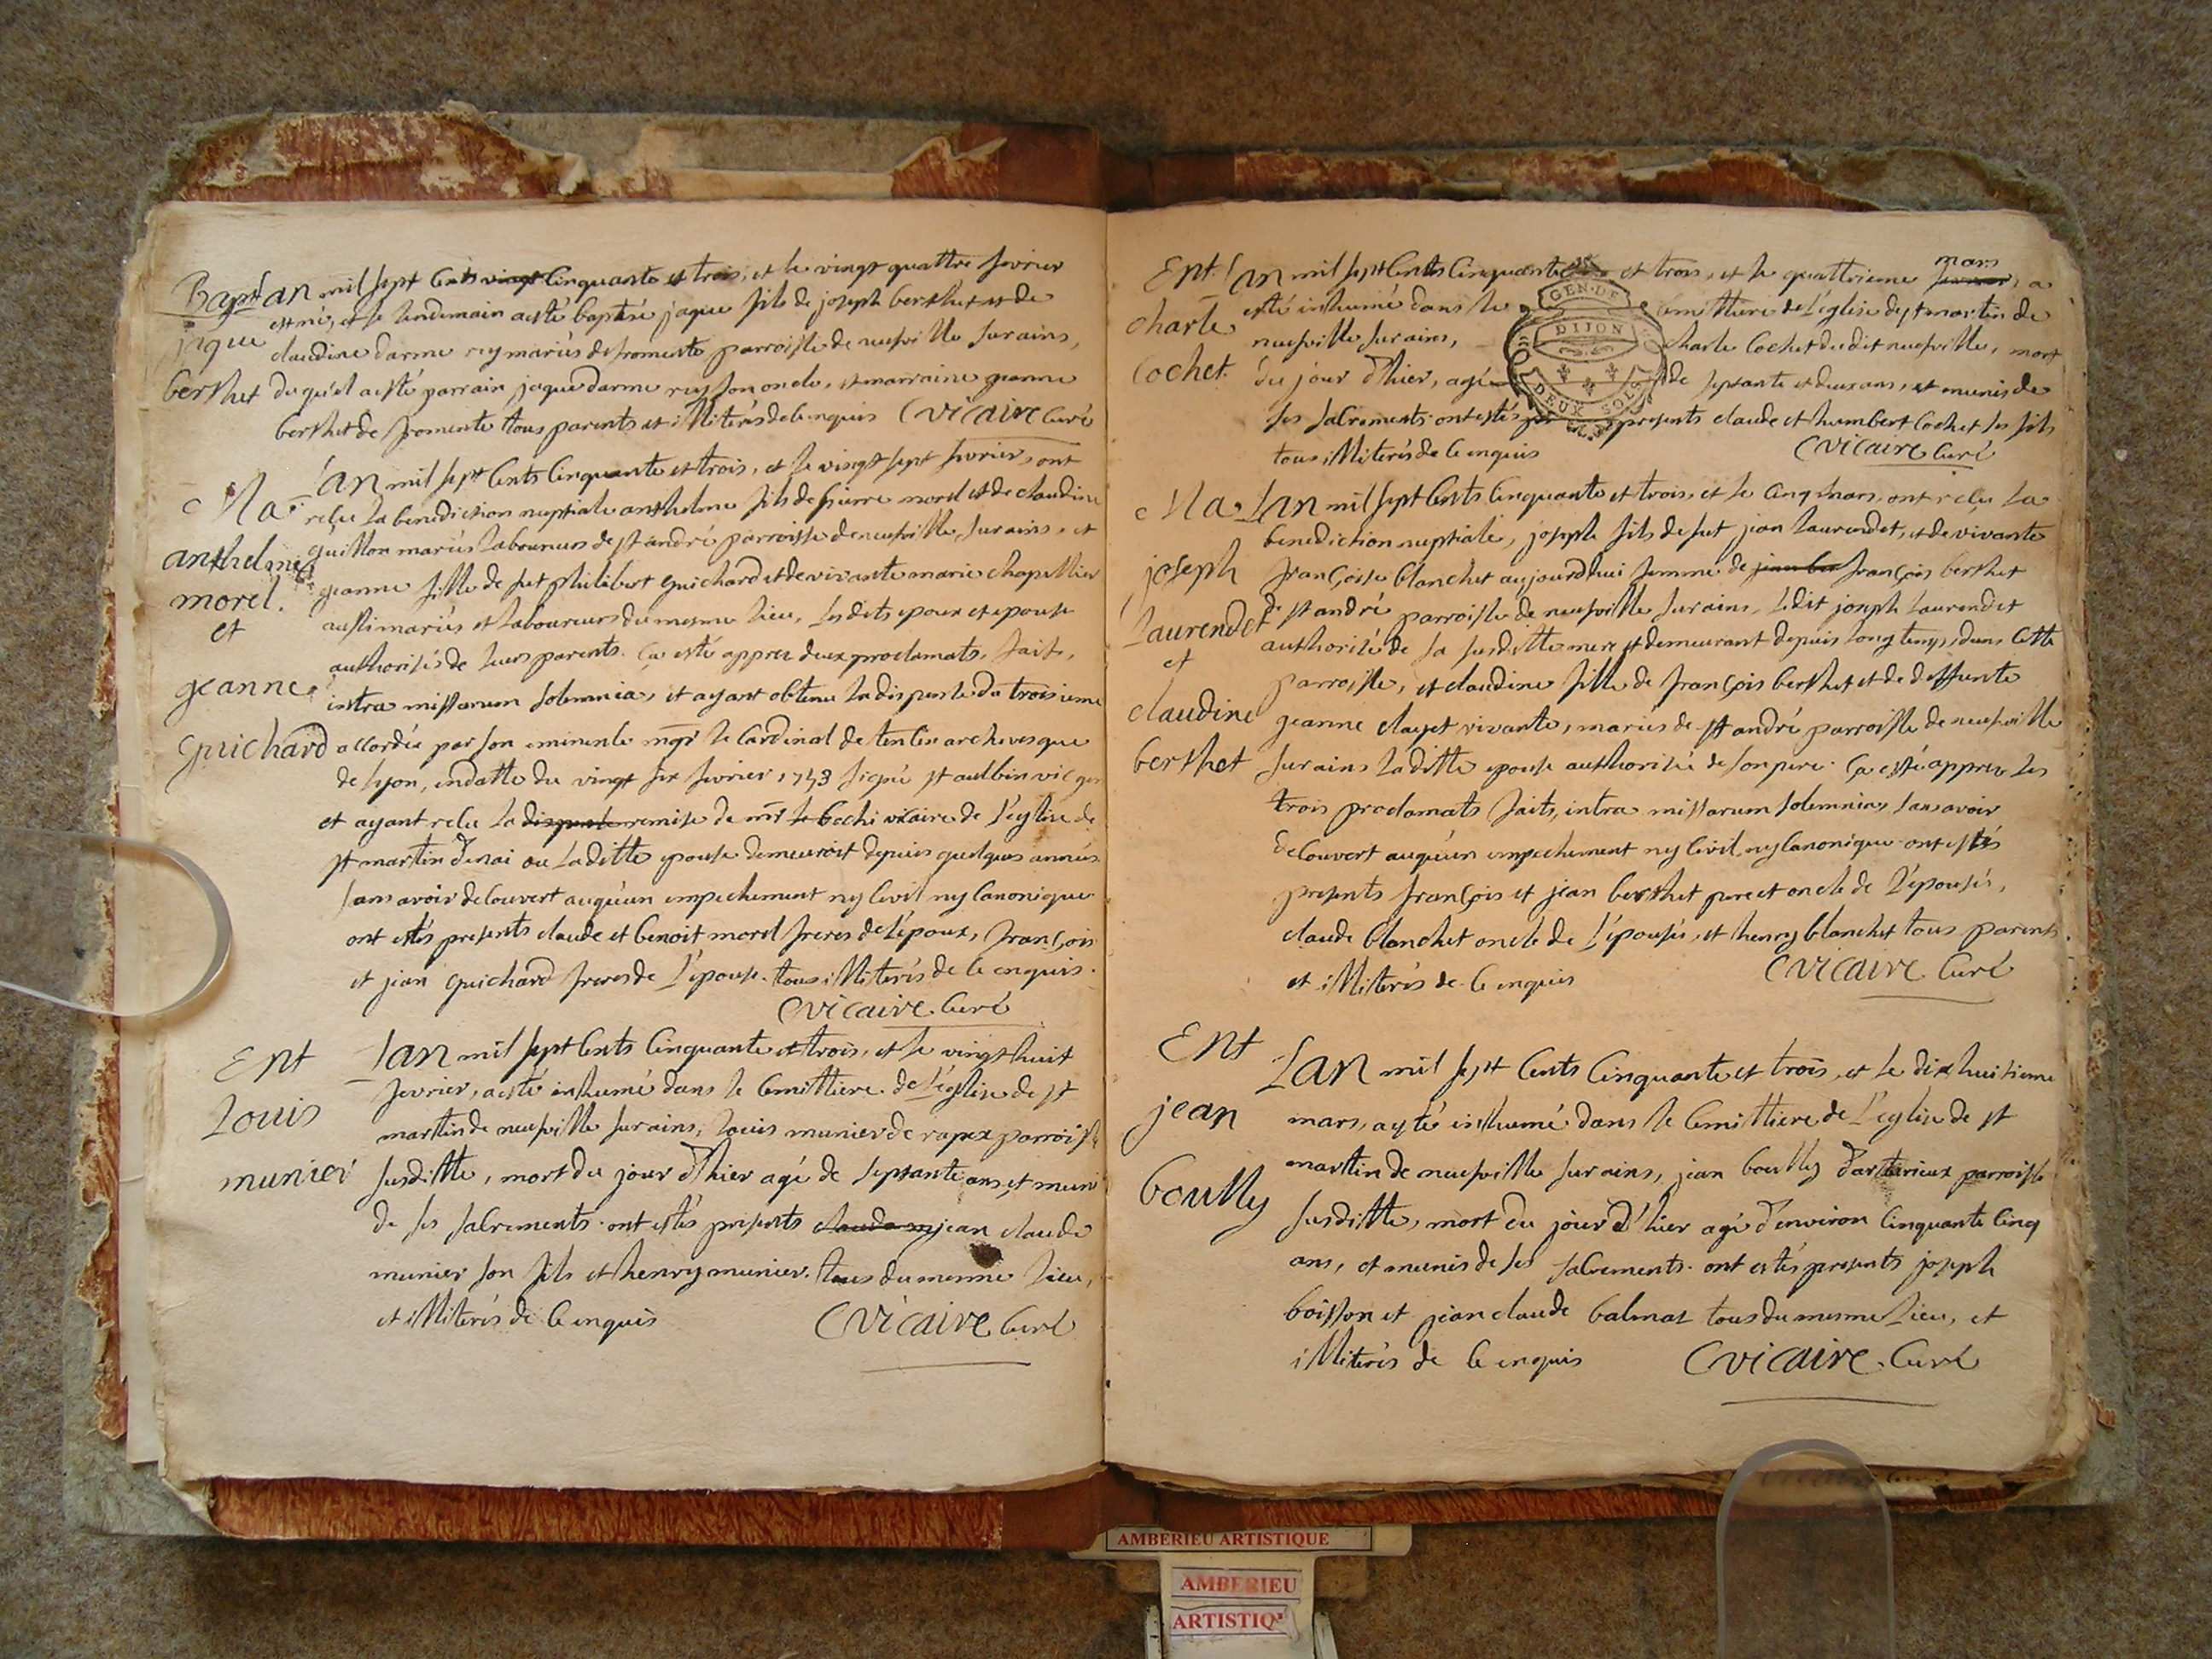 Bapt
jaque
berthet
L'an mil sept cents vingt cinquante et trois, et le vingt quattre fevrier
est né, et le lendemain a esté baptisé jaque fils de joseph berthet et de
claudine darme rey mariés de fromente parroisse de neufville sur ains,
du quel a esté parrain jaque darme rey son oncle, et marraine jeanne
berthet de fromente tous parents et illiterés de ce enquis C vicaire Curé
Ma
anthelme
morel.
et
jeanne
guichard
L'an mil sept Cents Cinquante et trois, et le vingt sept fevrier, ont
reçu la benediction nuptiale anthelme fils de pierre morel et de claudine
guillon mariés laboureurs de st andré parroisse de neufville sur ains, et
jeanne fille de fut philibert guichard et de vivante marie chapellier
aussi mariés et laboureurs du mesme lieu, les dits epoux et epouse
authorisés de leurs parents. Ça esté appres deux proclamats, faits,
intra missarum solemnia, et ayant obtenu la dispense du troisieme
accordée par son eminence mgr le Cardinal de tencin archevesque
de lyon, en datte du vingt six fevrier 1753 signé st aulbin vic gen
et ayant reçu la dispense remise de mr le bochi vicaire de l'eglise de
st martin d'enai ou la ditte epouse demeuroit depuis quelques années
sans avoir decouvert auqu'un empechement ny Civil ny Canonique
ont estés presents claude et benoit morel freres de l'epoux, françois
et jean guichard freres de l'epouse. tous illiterés de ce enquis.
C vicaire. Curé
Ent
Louis
munier
L'an mil sept Cents Cinquante et trois, et le vingt huit
fevrier, a esté inhumé dans le Cemittiere de l'eglise de st
martin de neufville sur ains, Louis munier de rapex parroisse
susditte, mort du jour d'hier agé de septante ans, et muni
de ses sacrements. ont estés presents claude m jean claude
munier son fils et henry munier. tous du mesme lieu,
et illiterés de ce enquis C vicaire Curé
Ent.
charle
Cochet.
L'an mil sept Cents Cinquante et trois, et le quattrieme mars, a
esté inhumé dans le Cemittiere de l'eglise de st martin de
neufville sur ains, charle Cochet du dit neufville, mort
du jour d'hier, agé de septante et deux ans, et munis de
ses sacrements. ont estés presents claude et humbert Cochet ses fils
tous illiterés de ce enquis C vicaire Curé
GEN. DE
DIJON
DEUX SOLS
Ma
joseph
Laurendet
et
claudine
berthet
L'an mil sept Cents Cinquante et trois, et le Cinq mars, ont reçu la
benediction nuptiale, joseph fils de fut jean laurendet, et de vivante
françoise blanchet aujourdhui femme de jean ber françois berthet
de st andré parroisse de neufville sur ains, ledit joseph laurendet
authorisé de sa susditte mere et demeurant depuis long temps dans cette
parroisse, et claudine fille de françois berthet et de deffunte
jeanne clayet vivante, mariés de st andré parroisse de neufville
sur ains la ditte epouse authorisée de son pere. Ça esté appres les
trois proclamats faits, intra missarum solemnia, sans avoir
decouvert auqu'un empechement ny Civil, ny Canonique. ont estés
presents françois et jean berthet pere et oncle de l'épousés,
claude blanchet oncle de l'épousés, et henry blanchet tous parents
et illiterés de ce enquis C vicaire Curé
Ent
jean
boully
L'an mil sept Cents Cinquante et trois, et le dix huitieme
mars, a été inhumé dans le Cemittiere de l'eglise de st
martin de neufville sur ains, jean boully parroisse
susditte, mort du jour d'hier agé d'environ Cinquante Cinq
ans, et munis de ses sacrements. ont estés presents joseph
boisson et jean claude balmat tous du mesme lieu, et
illiterés de ce enquis C vicaire. Curé
AMBERIEU ARTISTIQUE
AMBERIEU
ARTISTIQ